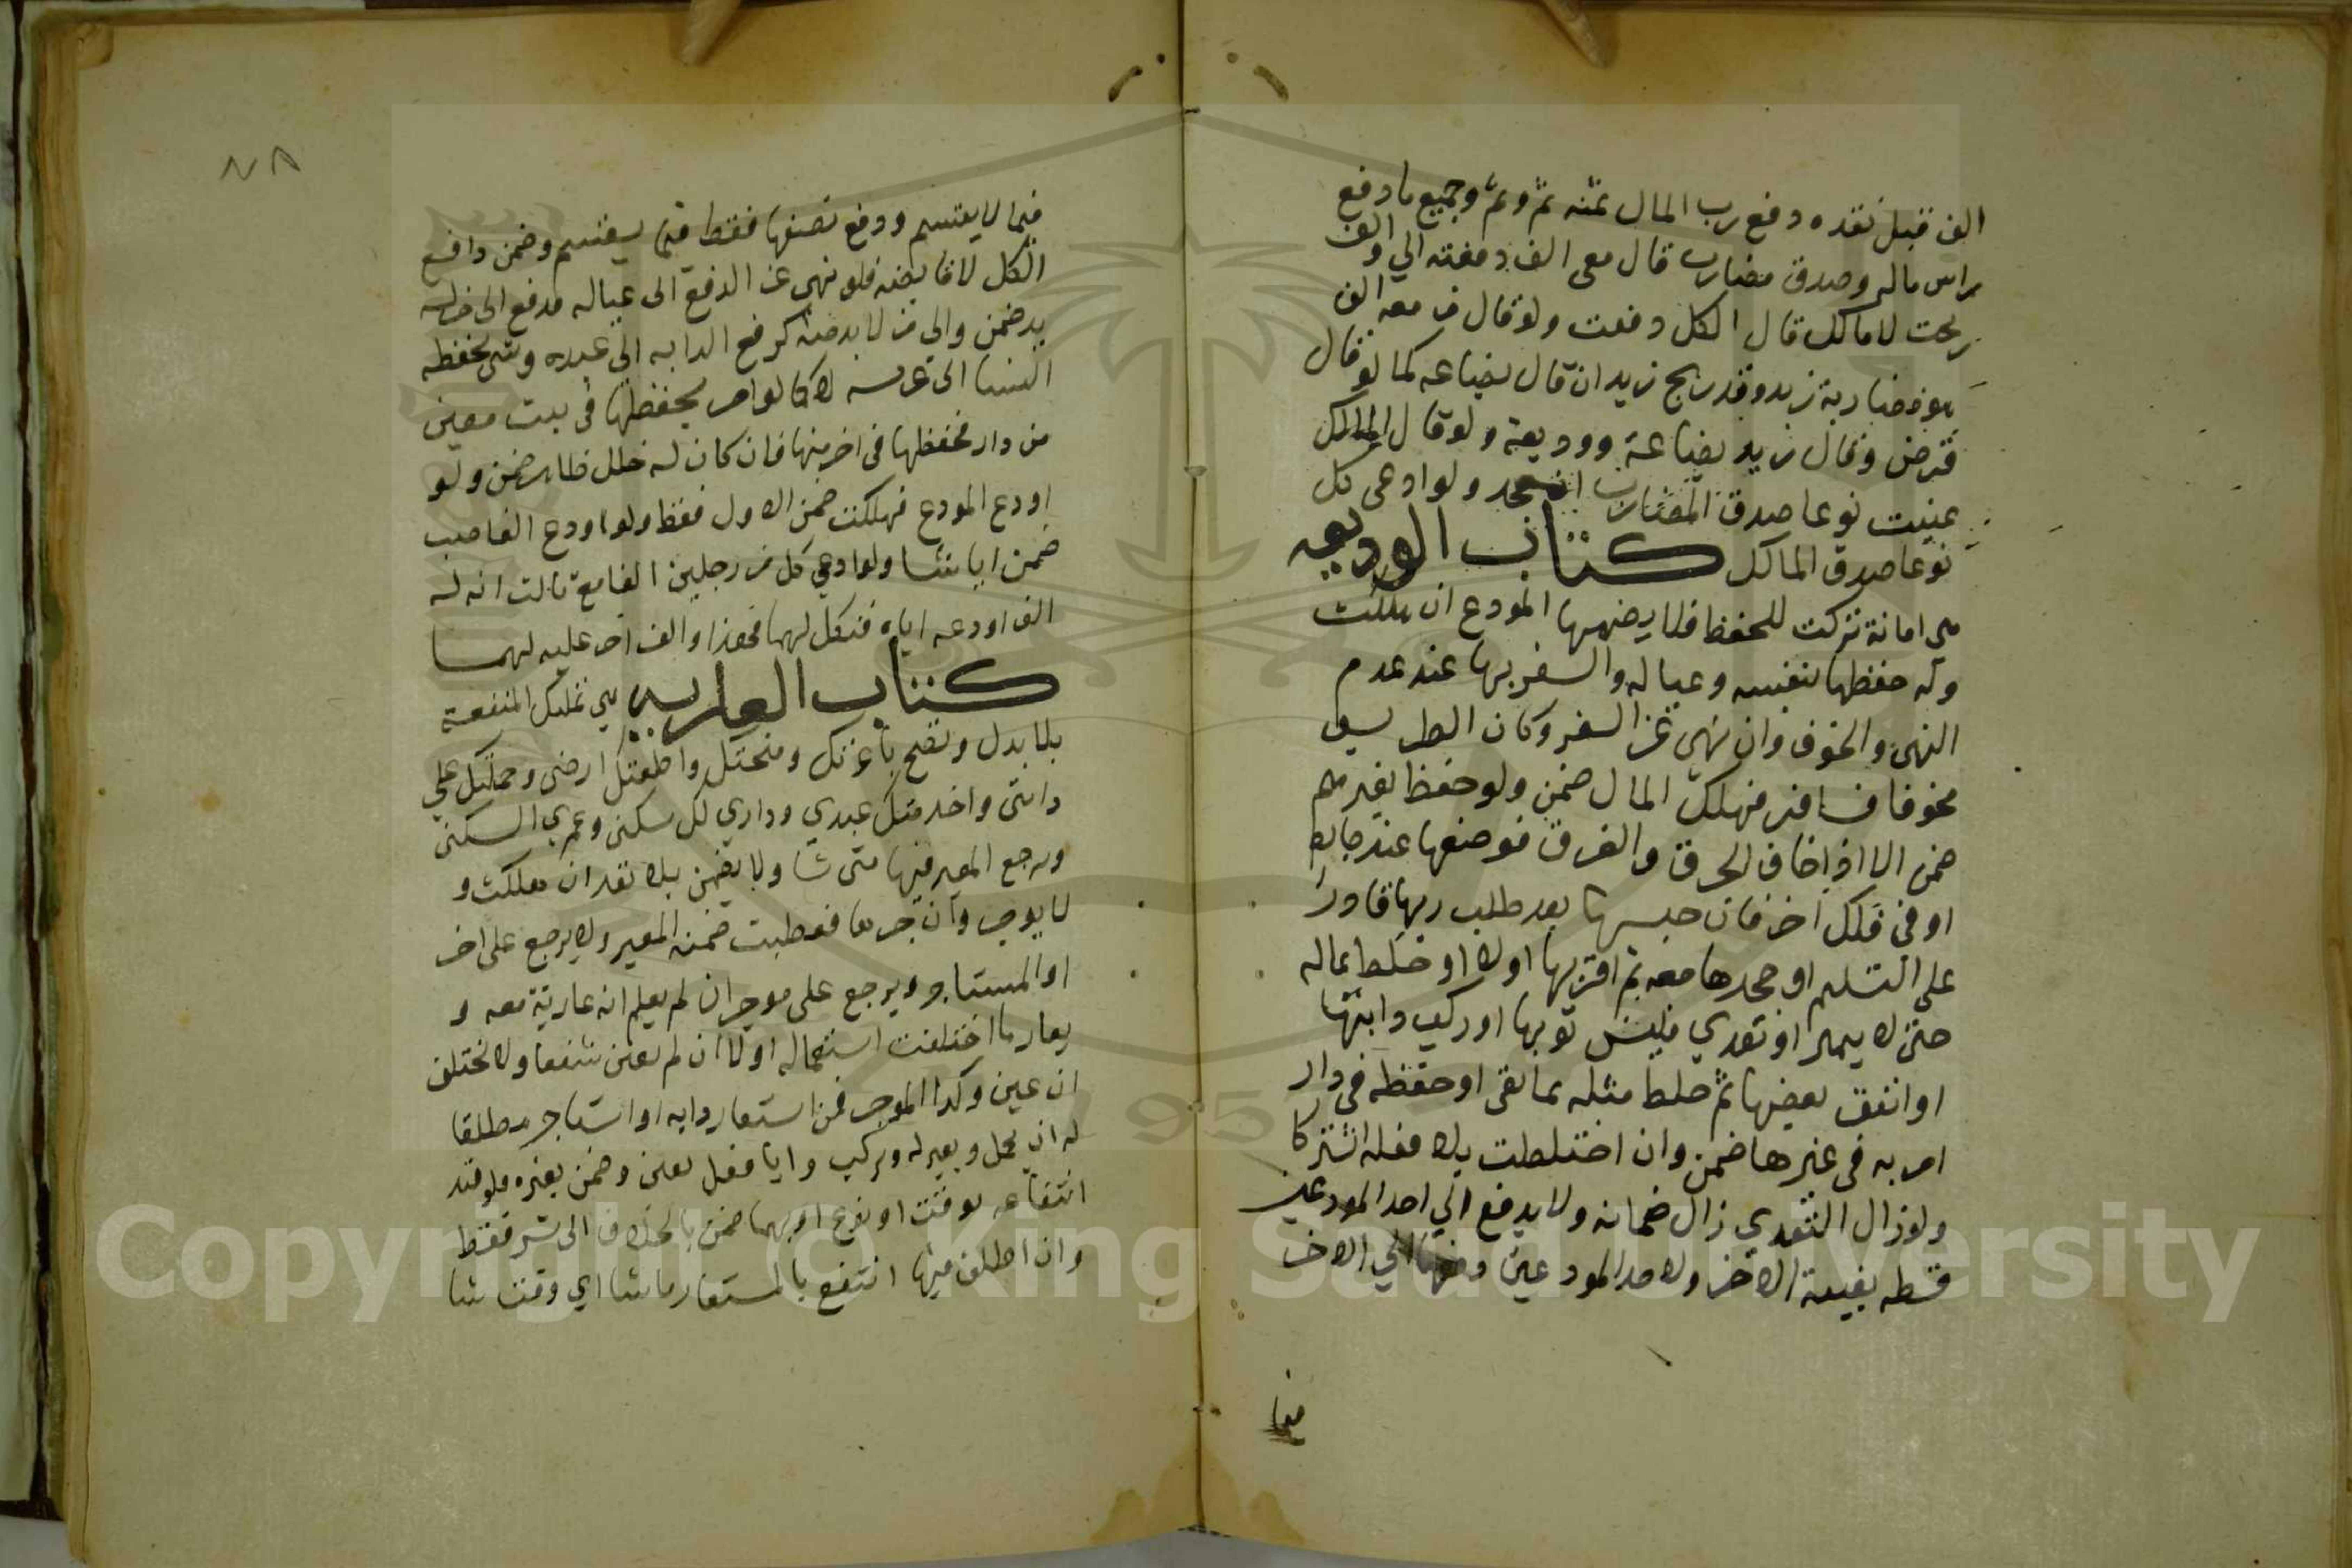 الف فقبل نقده دفع رب المال ثمنه ثم وثم وجميع ما دفع
راس ماله وصدق مضارب قال معي الف دفعته الي والف
ربحت لا مالك قال الكل دفعت ولو قال من معه الف
هو مضاربة زيد وقد ربح زيدان قال بضاعه كما لو قال
قرض وقال زيد بضاعة ووديعة ولو قال المالك
عينت نوعا صدق المضارب ان جحد ولو ادعى كل
نوعا صدق المالك كتاب الوديعه
هي امانة تركت للحفظ فلا يضمنها المودع ان هلكت
وله حفظها بنفسه وعياله والسفر بها عند عدم
النهي والخوف وان نهي عن السفر وكان الطريق
مخوفا فسافر فهلك المال ضمن ولو حفظ بغيرهم
ضمن الا اذا خاف الحرق والغرق فوضعها عند جاره
او في فلك اخر فان حبسها بعد طلب ربها قادرا
على التسليم او جحدها معه ثم اقر بها اولا او خلط بماله
حتى لا يميز او تعدي فلبس ثوبها او ركب دابتها
او انفق بعضها ثم خلط مثله بما بقى او حفظه في دار
امر به في غيرها ضمن وان اختلطت بلا فعله اشتركا
ولو زال التعدي زال ضمانه ولا يدفع الي احد المودعين
قسطه بغيبة الاخر ولاحد المودعين دفعها الي الاخر
فيما
٧٨
فيما لا يقتسم ودفع نصفها فقط فيما يقتسم وضمن دافع
الكل لا قابضه فلو نهي عن الدفع الى عياله فدفع الى من له
بد ضمن والي من لا بد منه كدفع الدابه الى عبده وشي يحفظه
النسا الى عرسه لا كما لو امر بحفظها في بيت معين
من دار فحفظها في اخر منها فان كان له خلل ظاهر ضمن ولو
اودع المودع فهلكت ضمن الاول فقط ولو اودع الغاصب
ضمن ايا شا ولو ادعي كل من رجلين الفا مع ثالث انه له
الف اودعه اياه فنكل لهما فهذا والف اخر عليه لهما
كتاب العاريه هي تمليك المنفعة
بلا بدل وتصح باعرتك ومنحتك واطعمتك ارضي وحملتك علي
دابتي واخدمتك عبدي وداري لك سكنى وعمري السكنى
ويرجع المعير فيها متى شا ولا يضمن بلا تعد ان هلكت و
لا يوجر وان اجرها فعطبت ضمنه المعير ولا يرجع على احد
او المستاجر ويرجع على موجر ان لم يعلم انه عارية معه و
يعار ما اختلفت استعماله او لا ان لم يعين منتفعا ولا تختلف
ان عين وكذا الموجر فمن استعار دابه او استاجر مطلقا
له ان يحمل ويعير له ويركب وايا فعل تعين وضمن بغيره فلو قيد
انتفاعه بوقت او نوع او بهما ضمن بالخلاف الى شر فقط
وان اطلق فيها انتفع بالمستعار ما شا اي وقت شا
Copyright © King Saud University